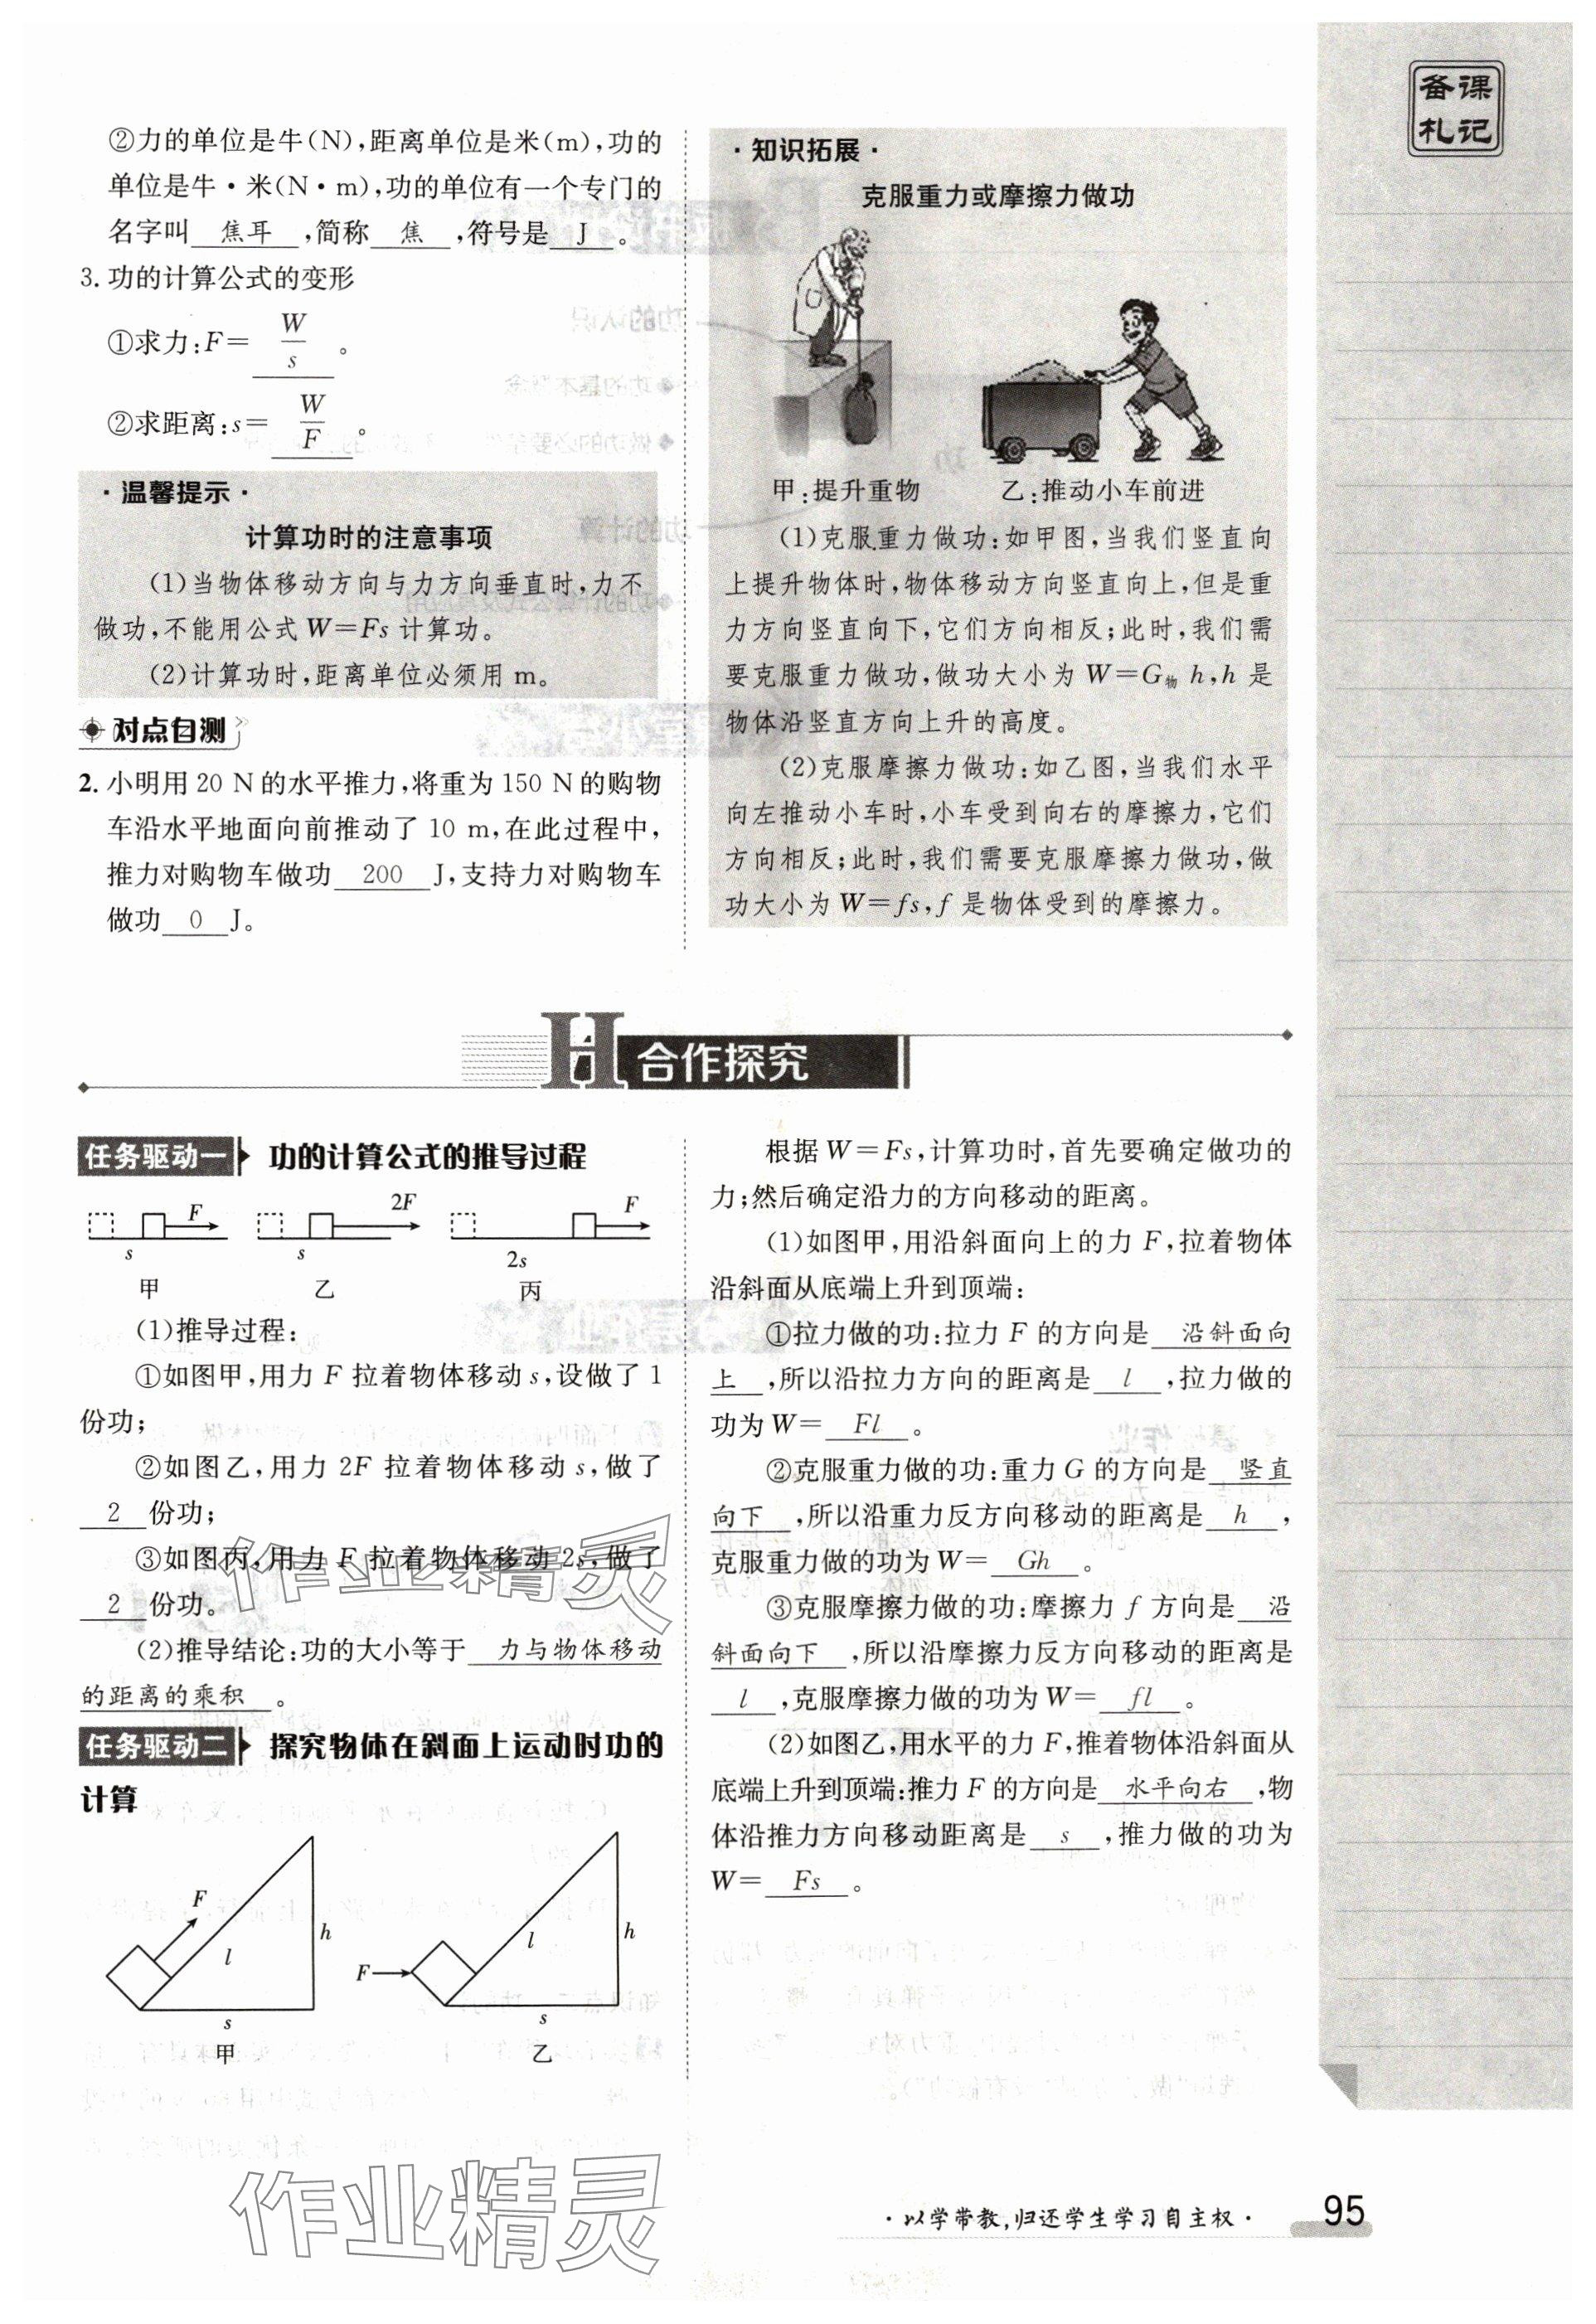 备课
札记
②力的单位是牛(N),距离单位是米(m),功的
单位是牛·米(N·m),功的单位有一个专门的
名字叫 焦耳 ,简称 焦 ,符号是 J 。
3. 功的计算公式的变形
①求力:F= W/s 。
②求距离:s= W/F 。
·温馨提示·
计算功时的注意事项
(1)当物体移动方向与力方向垂直时,力不
做功,不能用公式 W=Fs 计算功。
(2)计算功时,距离单位必须用 m。
对点自测
2. 小明用 20 N 的水平推力,将重为 150 N 的购物
车沿水平地面向前推动了 10 m,在此过程中,
推力对购物车做功 200 J,支持力对购物车
做功 0 J。
·知识拓展·
克服重力或摩擦力做功
甲:提升重物 乙:推动小车前进
(1)克服重力做功:如甲图,当我们竖直向
上提升物体时,物体移动方向竖直向上,但是重
力方向竖直向下,它们方向相反;此时,我们需
要克服重力做功,做功大小为 W=G物 h,h 是
物体沿竖直方向上升的高度。
(2)克服摩擦力做功:如乙图,当我们水平
向左推动小车时,小车受到向右的摩擦力,它们
方向相反;此时,我们需要克服摩擦力做功,做
功大小为 W=fs,f 是物体受到的摩擦力。
H 合作探究
任务驱动一 功的计算公式的推导过程
F 2F F
s s 2s
甲 乙 丙
(1)推导过程:
①如图甲,用力 F 拉着物体移动 s,设做了 1
份功;
②如图乙,用力 2F 拉着物体移动 s,做了
2 份功;
③如图丙,用力 F 拉着物体移动 2s,做了
2 份功。
(2)推导结论:功的大小等于 力与物体移动
的距离的乘积 。
任务驱动二 探究物体在斜面上运动时功的
计算
F l h s
甲
F l h s
乙
根据 W=Fs,计算功时,首先要确定做功的
力;然后确定沿力的方向移动的距离。
(1)如图甲,用沿斜面向上的力 F,拉着物体
沿斜面从底端上升到顶端:
①拉力做的功:拉力 F 的方向是 沿斜面向
上 ,所以沿拉力方向的距离是 l ,拉力做的
功为 W= Fl 。
②克服重力做的功:重力 G 的方向是 竖直
向下 ,所以沿重力反方向移动的距离是 h ,
克服重力做的功为 W= Gh 。
③克服摩擦力做的功:摩擦力 f 方向是 沿
斜面向下 ,所以沿摩擦力反方向移动的距离是
l ,克服摩擦力做的功为 W= fl 。
(2)如图乙,用水平的力 F,推着物体沿斜面从
底端上升到顶端:推力 F 的方向是 水平向右 ,物
体沿推力方向移动距离是 s ,推力做的功为
W= Fs 。
作业精灵
作业精灵
·以学带教,归还学生学习自主权·
95